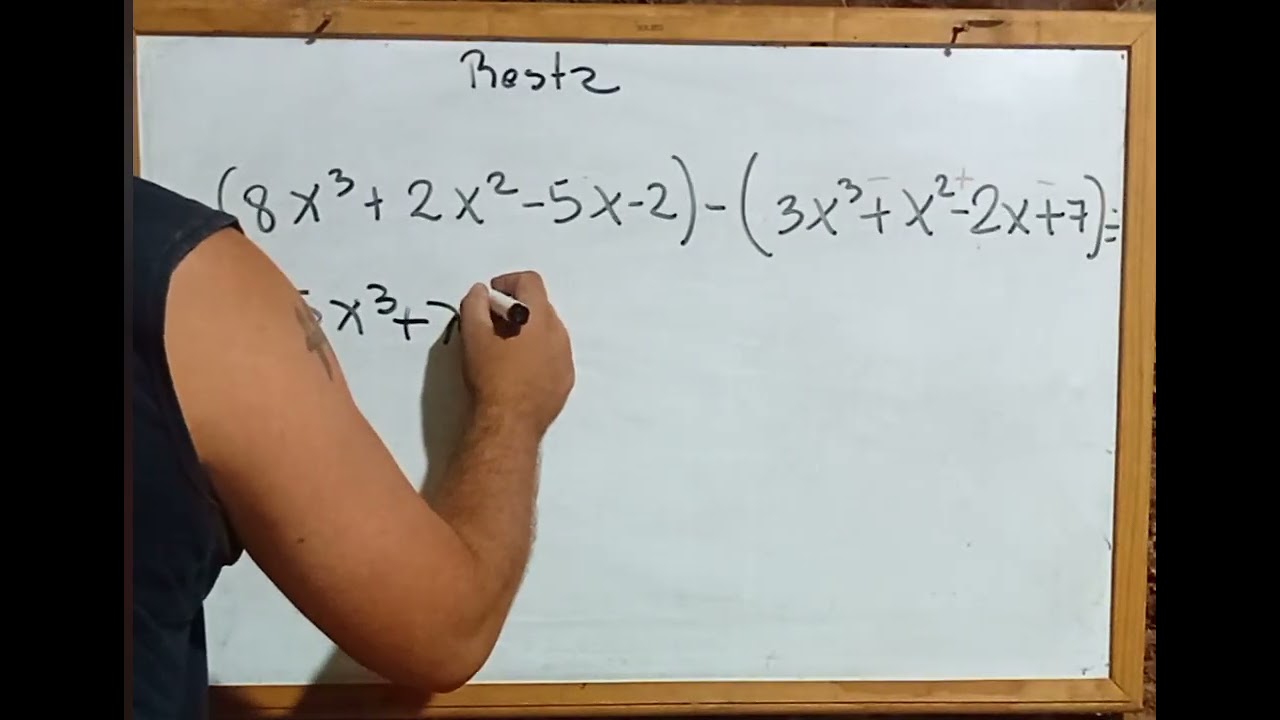 Resta
(8x³ + 2x² - 5x - 2) - (3x³ + x² - 2x + 7) =
5x³ + x